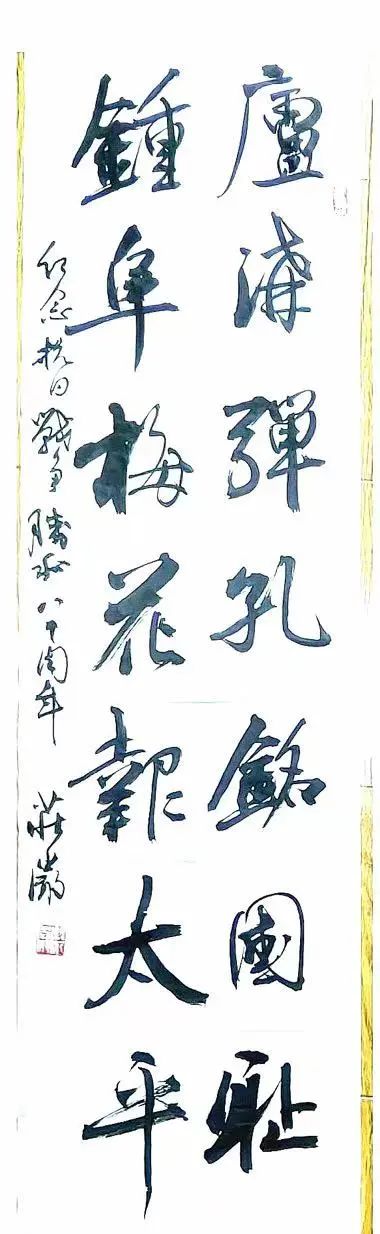 盧溝彈孔銘國恥
鍾阜梅花報太平
紀念抗日戰爭勝利八十周年 莊嚴